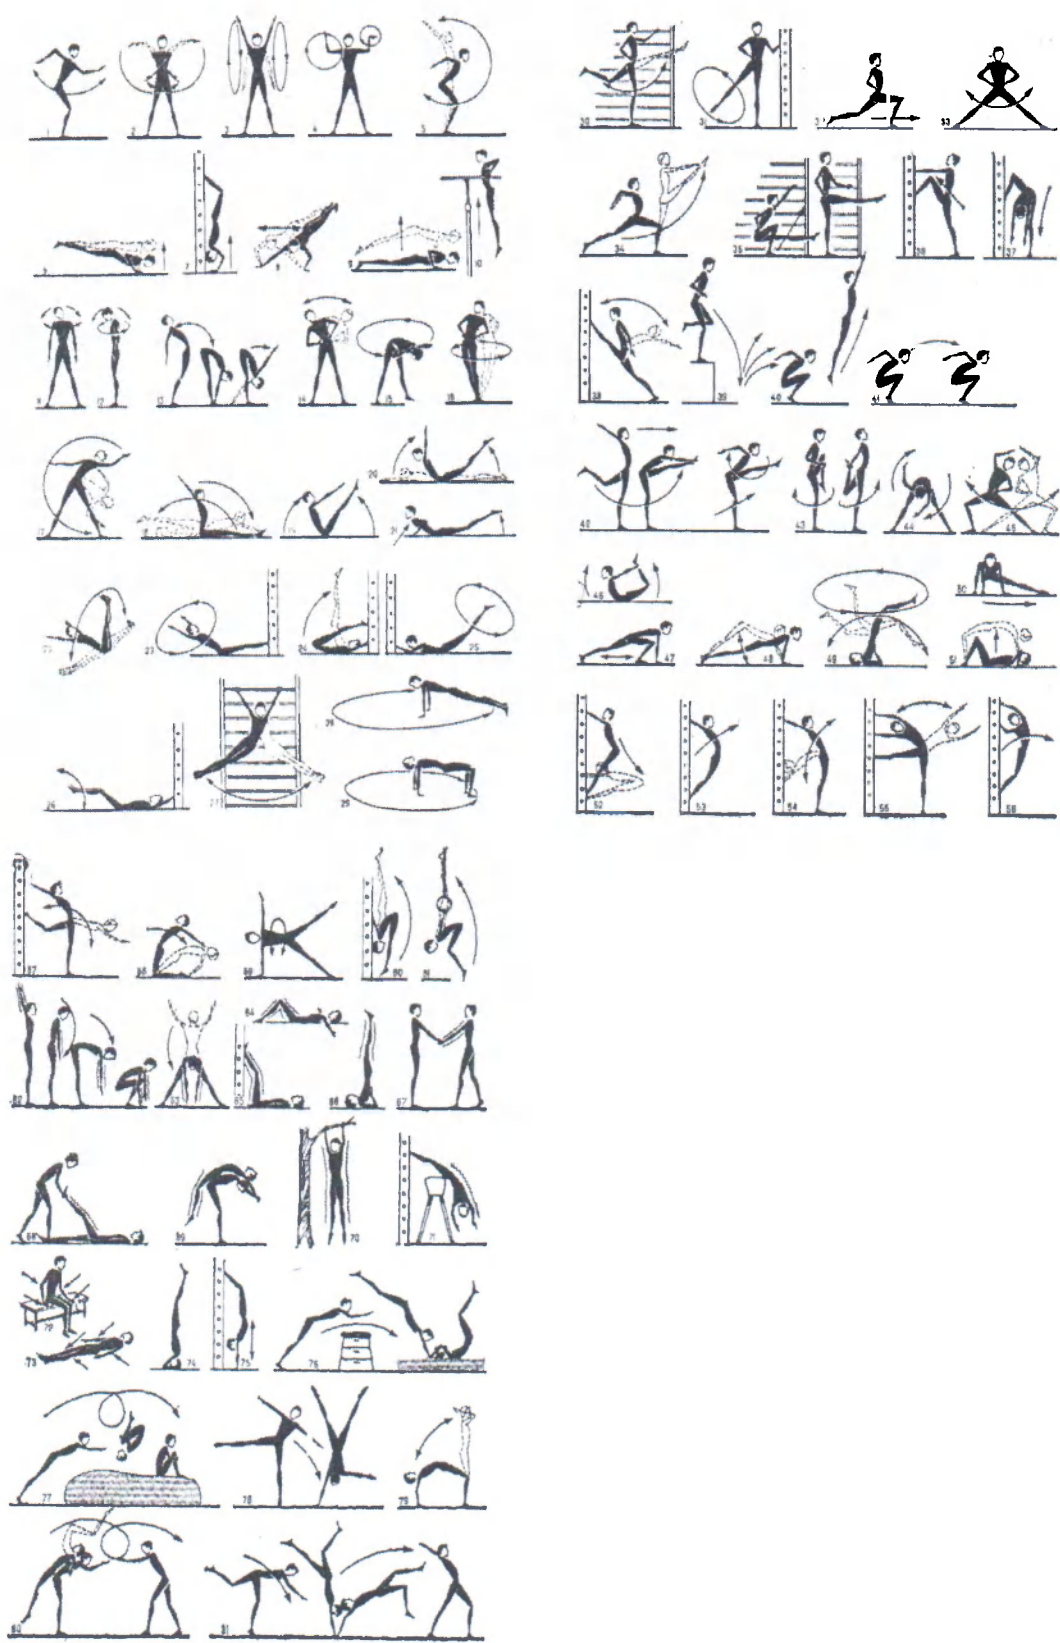 1 2 3 4 5
6 7 8 9 10
11 12 13 14 15 16
17 20 21
23 24 25
26 27 28 29
30 31 33
34 35 36 37
38 39 40 41
42 43 44 45
46 47 48 49 50 51
52 53 54 55 56
57 58 59 60
62 63 64 65 66 67
68 69 70 71
72 73 74 75 76
77 78 79
80 81